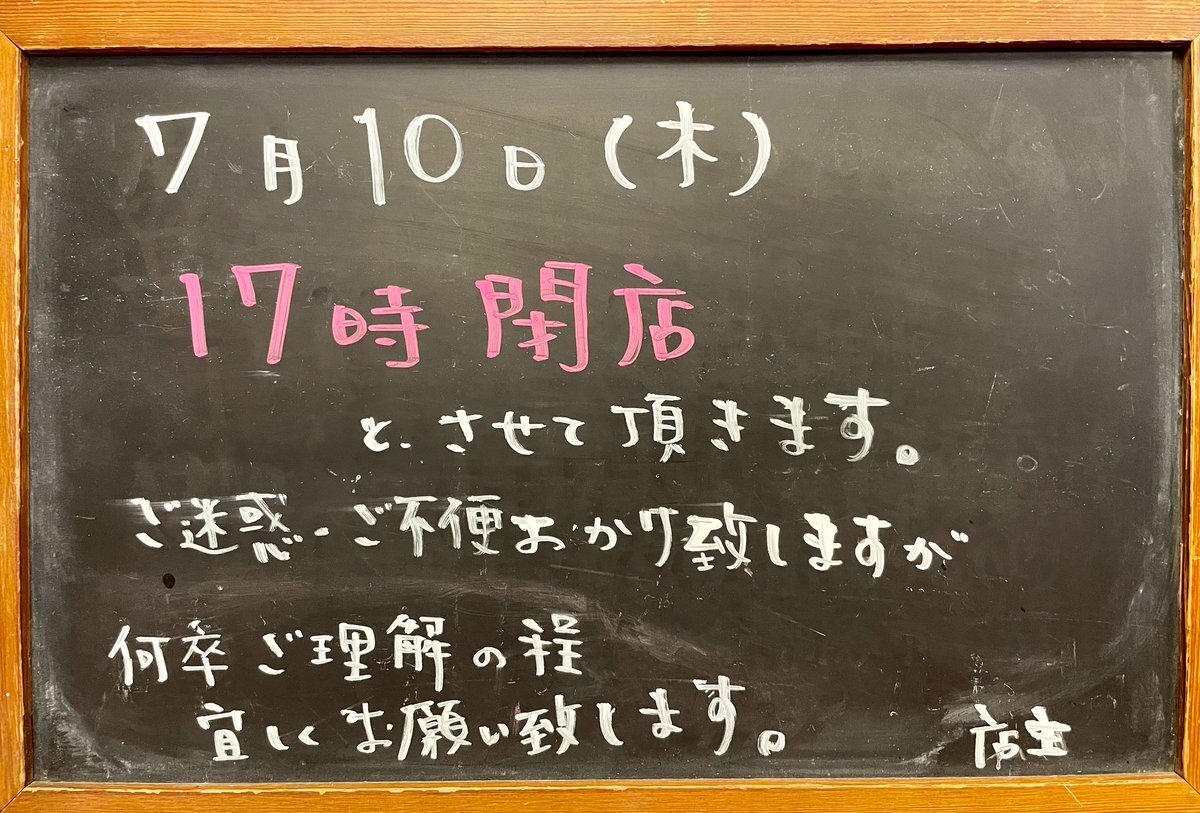 7月10日(木)
17時閉店
と、させて頂きます。
ご迷惑・ご不便おかけ致しますが
何卒ご理解の程
宜しくお願い致します。
店主